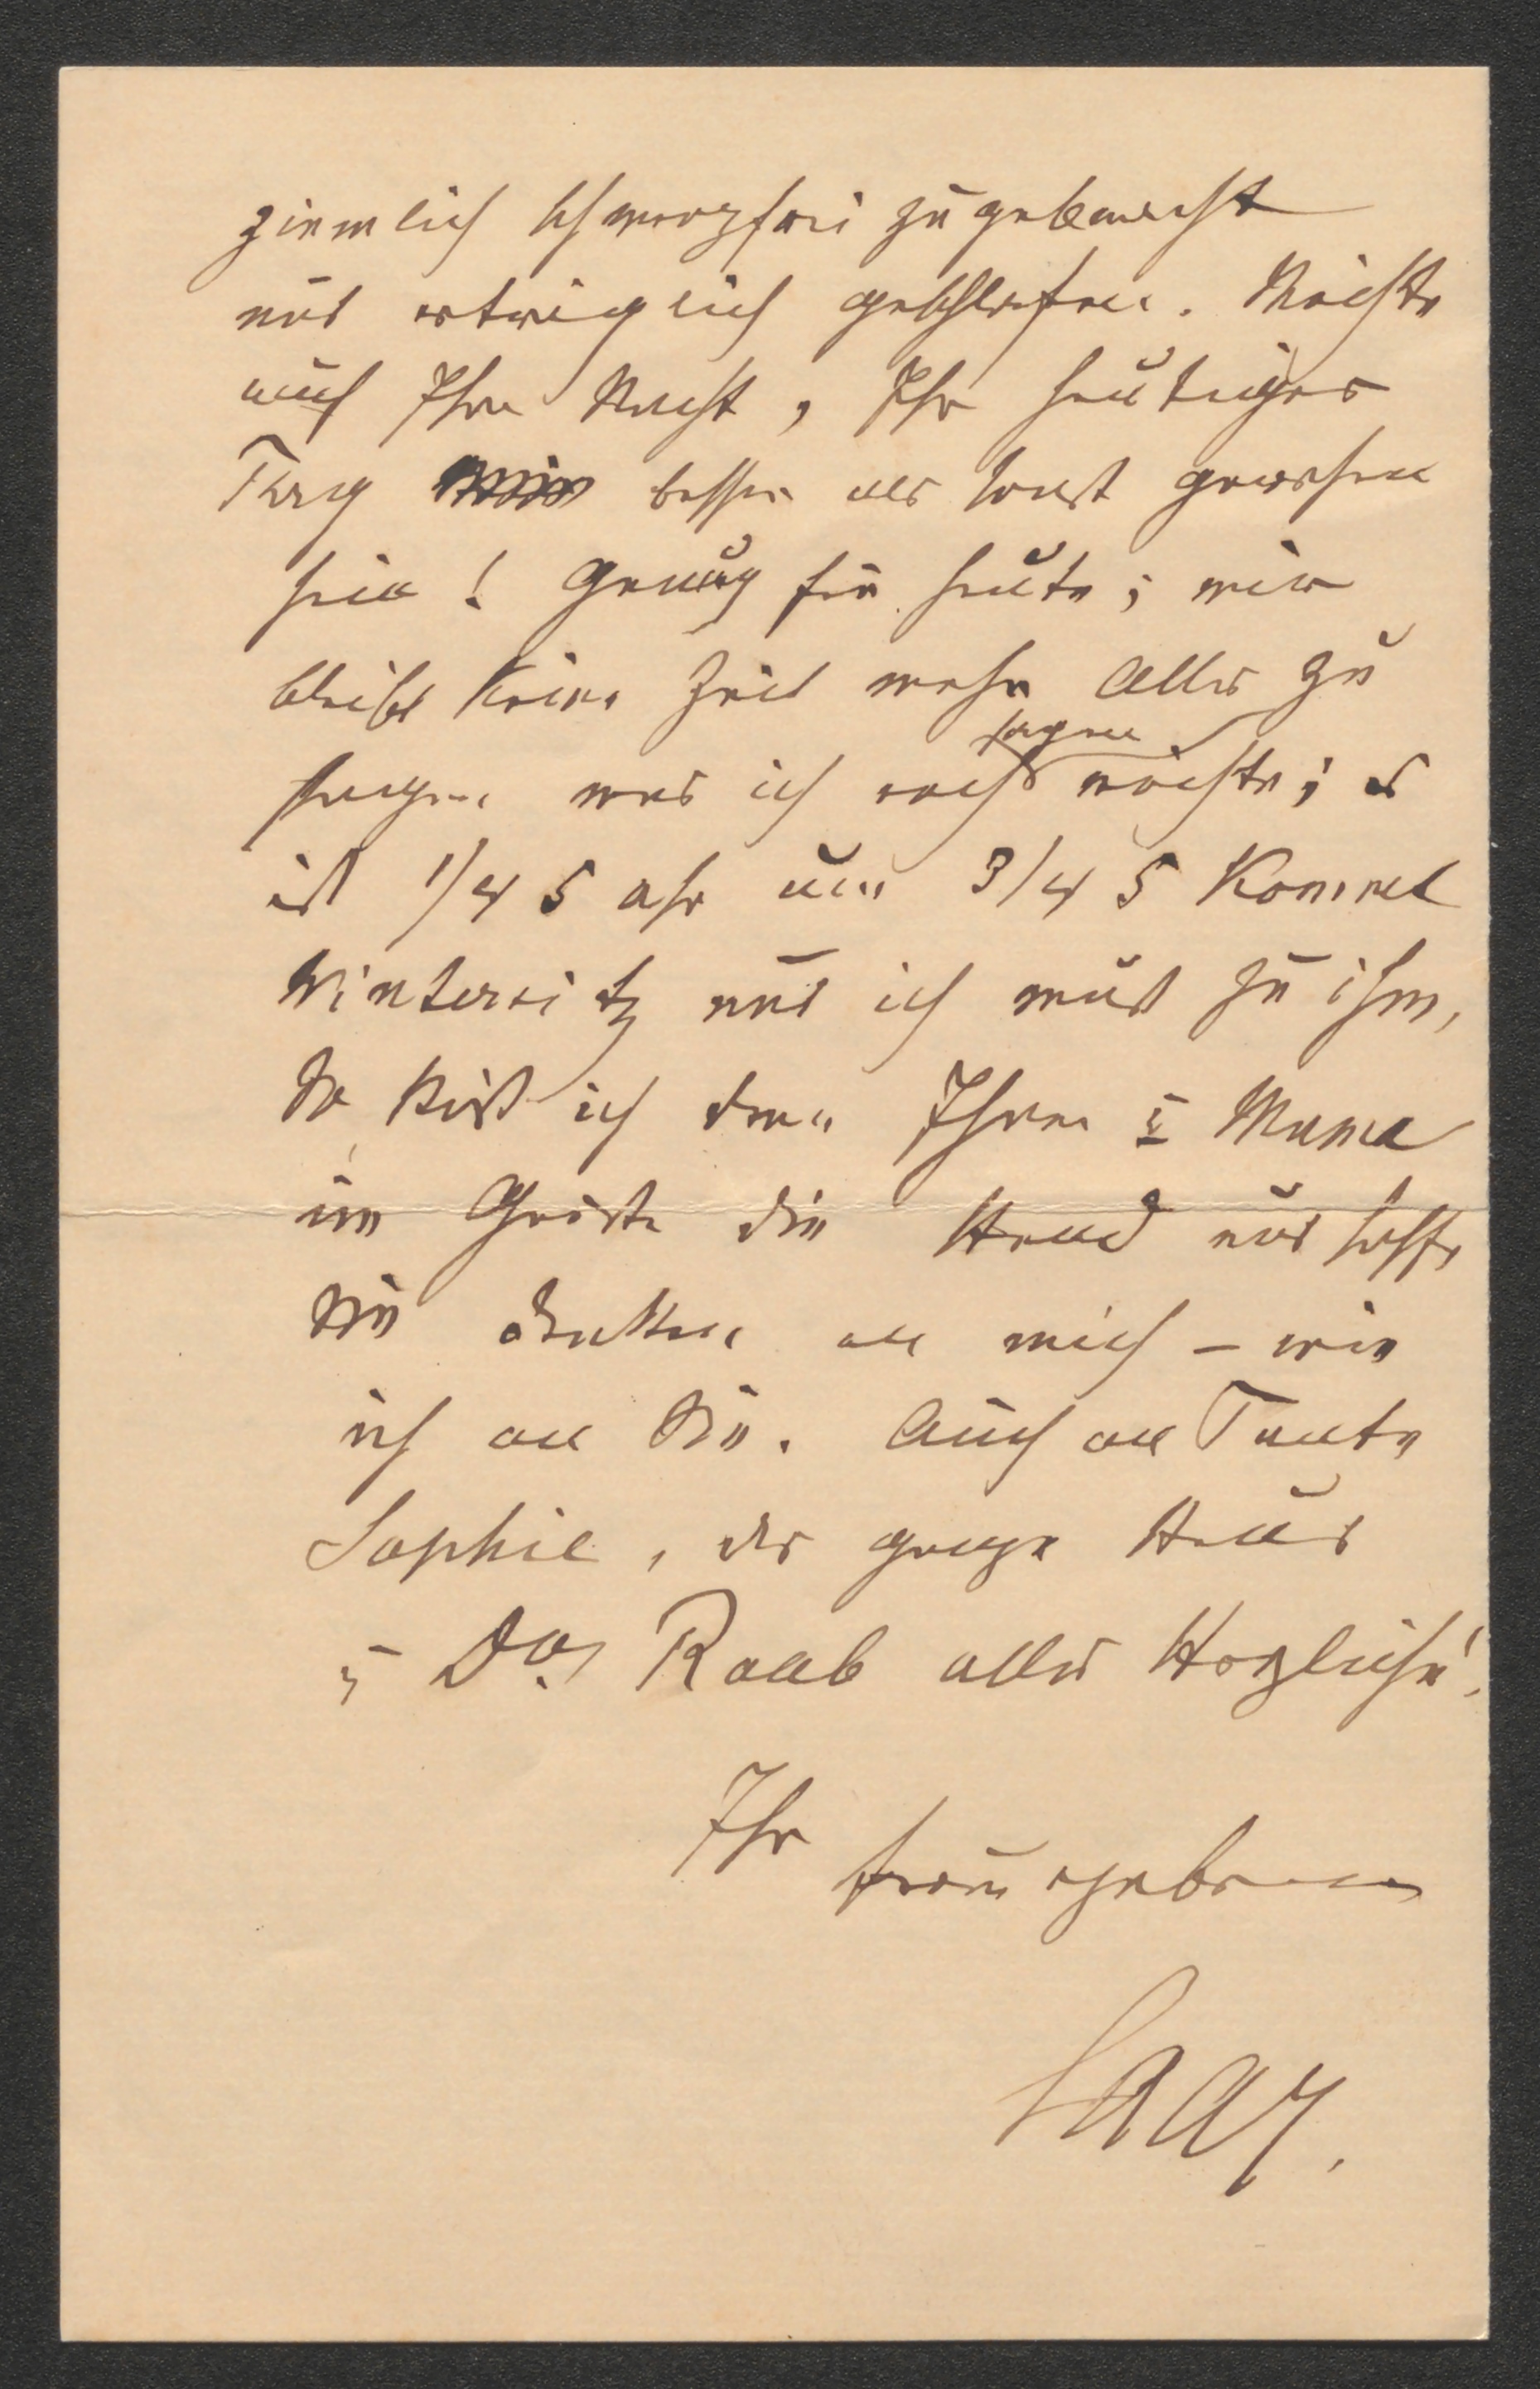 ziemlich schmerzfrei zugebracht
und erträglich geschlafen. Möchte
auch Ihre Nacht, Ihr heutiger
Tag besser als sonst gewesen
sein! Genug für heute; mir
bleibt keine Zeit mehr Alles zu
sagen was ich noch sagen möchte; es
ist 1/4 5 Uhr um 3/4 5 kommt
Winternitz und ich muß zu ihm,
So küß ich denn Ihnen u Mama
im Geiste die Hand und hoffe
Sie denken an mich – wie
ich an Sie. Auch an Tante
Sophie, das ganze Haus
u Dor Raab alles Herzliche!
Ihr treu ergebener
Saar.